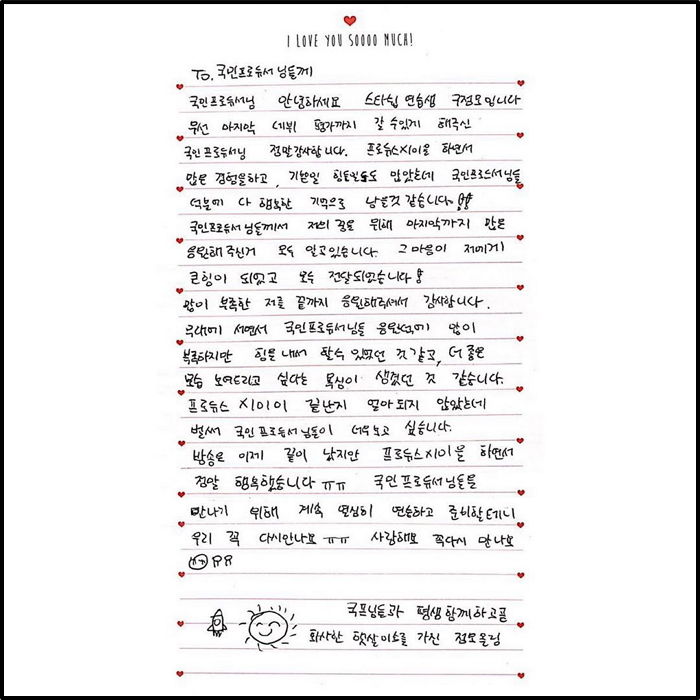 I LOVE YOU SOOOO MUCH!
To. 국민프로듀서님들께
국민프로듀서님 안녕하세요 스타쉽 연습생 구정모입니다
우선 마지막 데뷔 평가까지 갈 수있게 해주신
국민프로듀서님 정말감사합니다. 프로듀스X101을 하면서
많은 경험을하고, 기쁜일 힘든일들도 많았는데 국민프로듀서님들
덕분에 다 행복한 기억으로 남을것 같습니다!!
국민프로듀서님들께서 저의 꿈을 위해 마지막까지 많은
응원해주신거 모두 알고있습니다. 그 마음이 저에게
큰힘이 되었고 모두 전달되었습니다!
많이 부족한 저를 끝까지 응원해주셔서 감사합니다.
무대에 서면서 국민프로듀서님들 응원덕에 많이
부족하지만 힘을 내서 할수 있었던 것 같고, 더 좋은
모습 보여드리고 싶다는 욕심이 생겼던 것 같습니다.
프로듀스 X101이 끝난지 얼마되지 않았는데
벌써 국민프로듀서님들이 너무보고 싶습니다.
방송은 이제 끝이 났지만 프로듀스X101을 하면서
정말 행복했습니다ㅠㅠ 국민프로듀서님들을
만나기 위해 계속 열심히 연습하고 준비할테니
우리 꼭 다시만나요ㅠㅠ 사랑해요 꼭다시 만나요
국프님들과 평생함께하고픈
화사한 햇살미소를 가진 정모올림